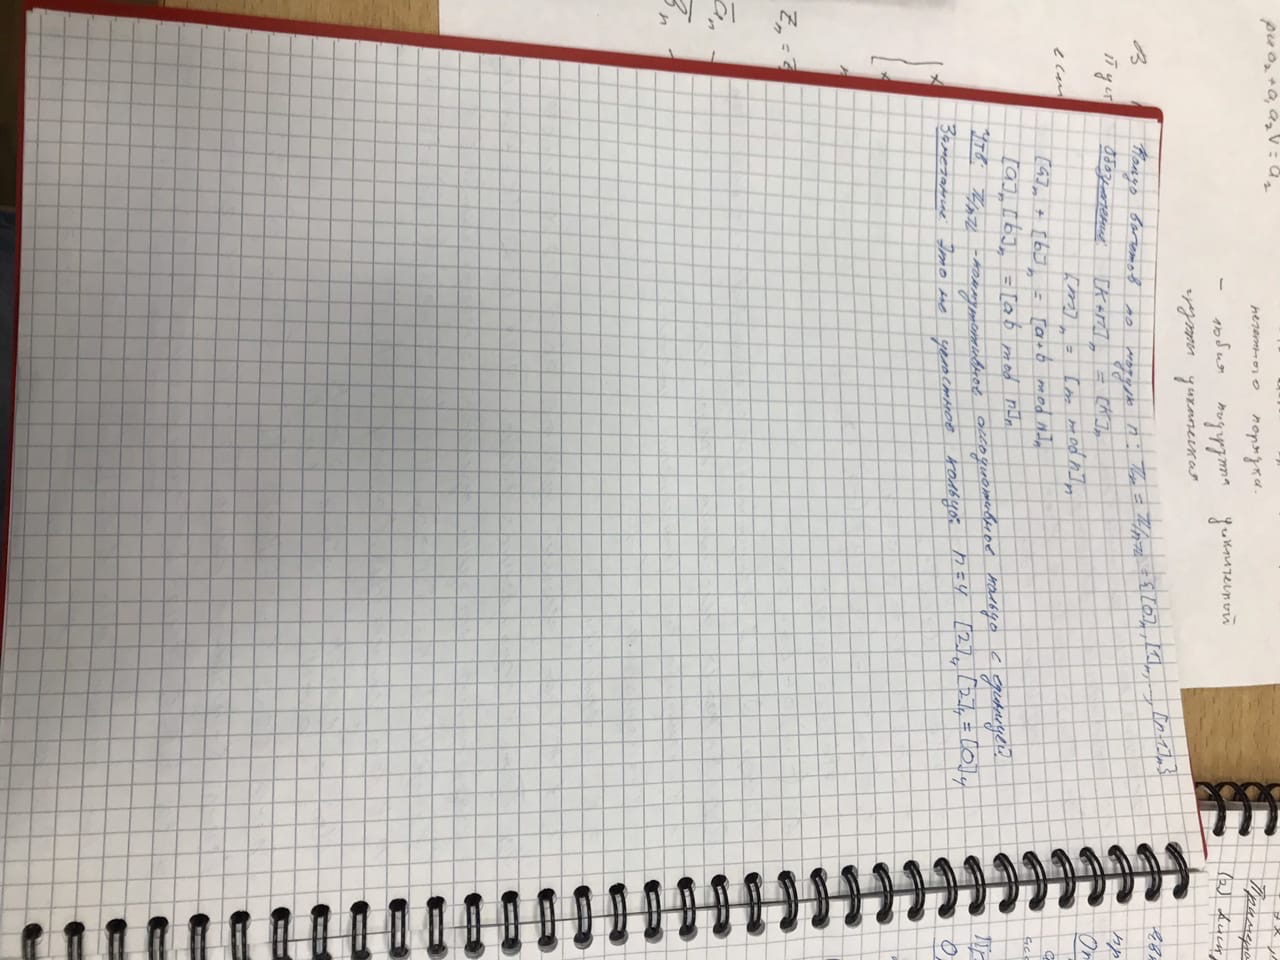 ри a₂ + a₁ a₂ v = a₂
нечетного порядка.
- любая подгруппа циклической
группы циклическая
В
Пуст
если
Zₙ =
āₙ -
Кольцо вычетов по модулю n: ℤₙ = ℤ/nℤ = {[0]ₙ, [1]ₙ, ..., [n-1]ₙ}
Обозначение: [k+n]ₙ = [k]ₙ
[m]ₙ = [m mod n]ₙ
[a]ₙ + [b]ₙ = [a+b mod n]ₙ
[a]ₙ[b]ₙ = [ab mod n]ₙ
Утв: ℤ/nℤ - коммутативное ассоциативное кольцо с единицей.
Замечание: Это не целостное кольцо: n=4 [2]₄[2]₄ = [0]₄
Примеры
(2)
пр
Оп
асс
Пр